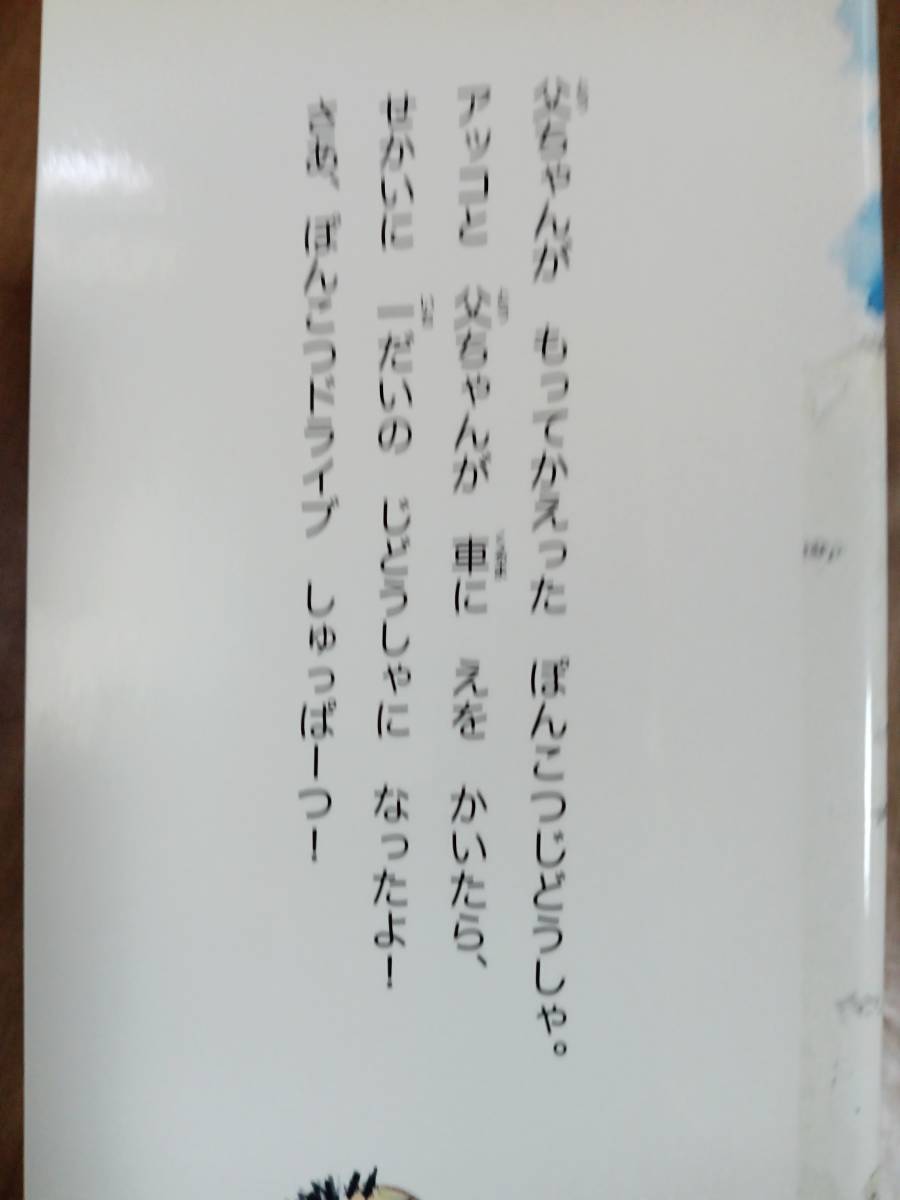 父ちゃんが もってかえった ぽんこつじどうしゃ。
アッコと 父ちゃんが 車に えを かいたら、
せかいに 一だいの じどうしゃに なったよ!
さあ、ぽんこつドライブ しゅっぱーつ!